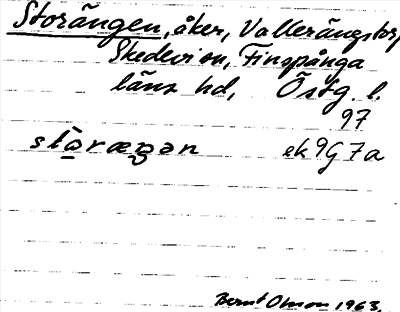 Storängen, åker, Vallerängstorp,
Skedevi sn, Finspånga
läns hd, Östg. l.
97
stòræŋən ek 9G 7a
Bernt Olsson 1963.